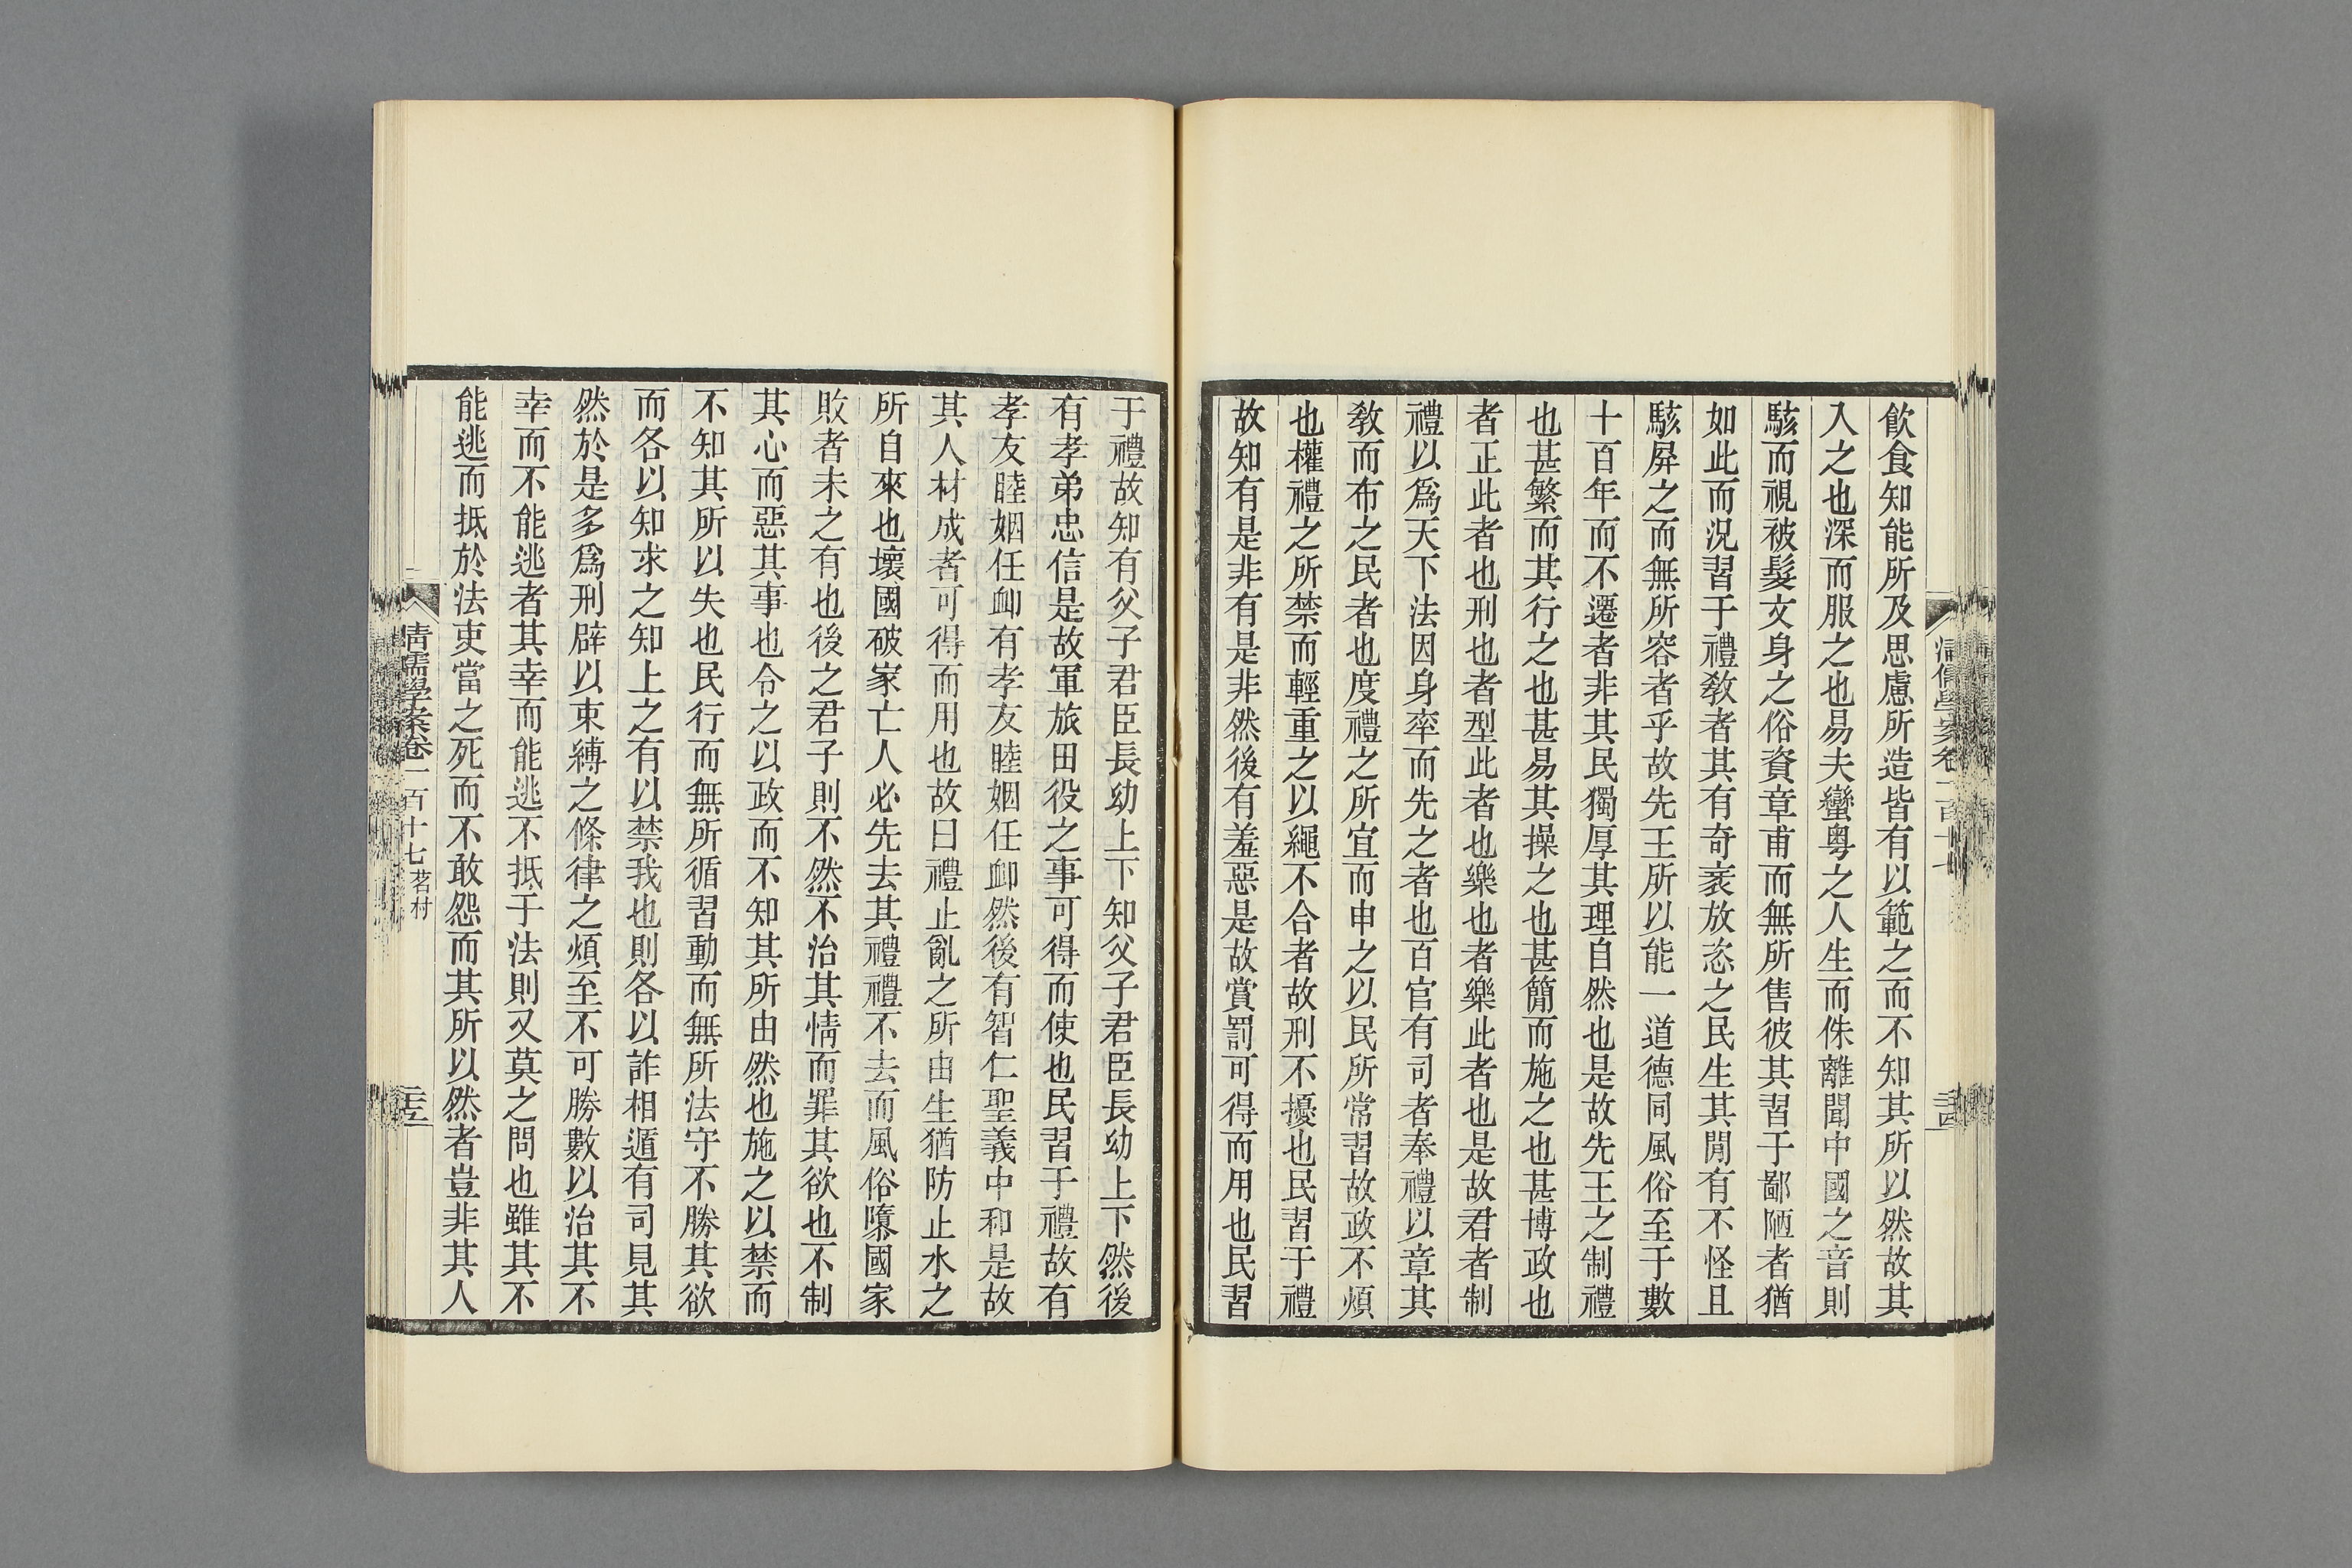 飲食知能所及思慮所造皆有以範之而不知其所以然故其
入之也深而服之也易夫蠻粤之人生而侏離聞中國之音則
駭而視被髮文身之俗資章甫而無所售彼其習于鄙陋者猶
如此而況習于禮敎者其有奇衺放恣之民生其閒有不怪且
駭屏之而無所容者乎故先王所以能一道德同風俗至于數
十百年而不遷者非其民獨厚其理自然也是故先王之制禮
也甚繁而其行之也甚易其操之也甚簡而施之也甚博政也
者正此者也刑也者型此者也樂也者樂此者也是故君者制
禮以爲天下法因身率而先之者也百官有司者奉禮以章其
敎而布之民者也度禮之所宜而申之以民所常習故政不煩
也權禮之所禁而輕重之以繩不合者故刑不擾也民習于禮
故知有是非有是非然後有羞惡是故賞罰可得而用也民習
于禮故知有父子君臣長幼上下知父子君臣長幼上下然後
有孝弟忠信是故軍旅田役之事可得而使也民習于禮故有
孝友睦姻任卹有孝友睦姻任卹然後有智仁聖義中和是故
其人材成者可得而用也故曰禮止亂之所由生猶防止水之
所自來也壞國破家亡人必先去其禮禮不去而風俗隳國家
敗者未之有也後之君子則不然不治其情而罪其欲也不制
其心而惡其事也令之以政而不知其所由然也施之以禁而
不知其所以失也民行而無所循習動而無所法守不勝其欲
而各以知求之知上之有以禁我也則各以詐相遁有司見其
然於是多爲刑辟以束縛之條律之煩至不可勝數以治其不
幸而不能逃者其幸而能逃不抵于法則又莫之問也雖其不
能逃而抵於法吏當之死而不敢怨而其所以然者豈非其人
清儒學案卷一百十七茗村